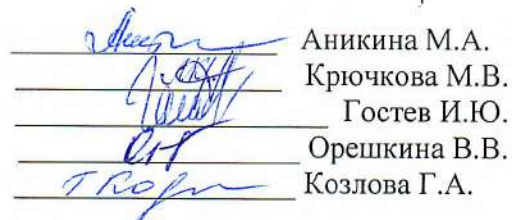 Аникина М.А.
Крючкова М.В.
Гостев И.Ю.
Орешкина В.В.
Козлова Г.А.